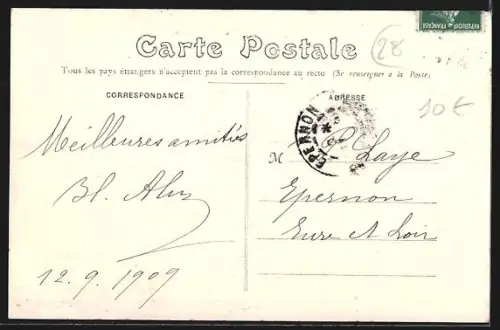 RÉPUBLIQUE FRANÇAISE
Carte Postale
28
Tous les pays étrangers n'acceptent pas la correspondance au recto (Se renseigner à la Poste)
CORRESPONDANCE
ADRESSE
10 €
EPERNON
Meilleures amitiés
12.9.1909
M
Laye
Epernon
Eure et Loir